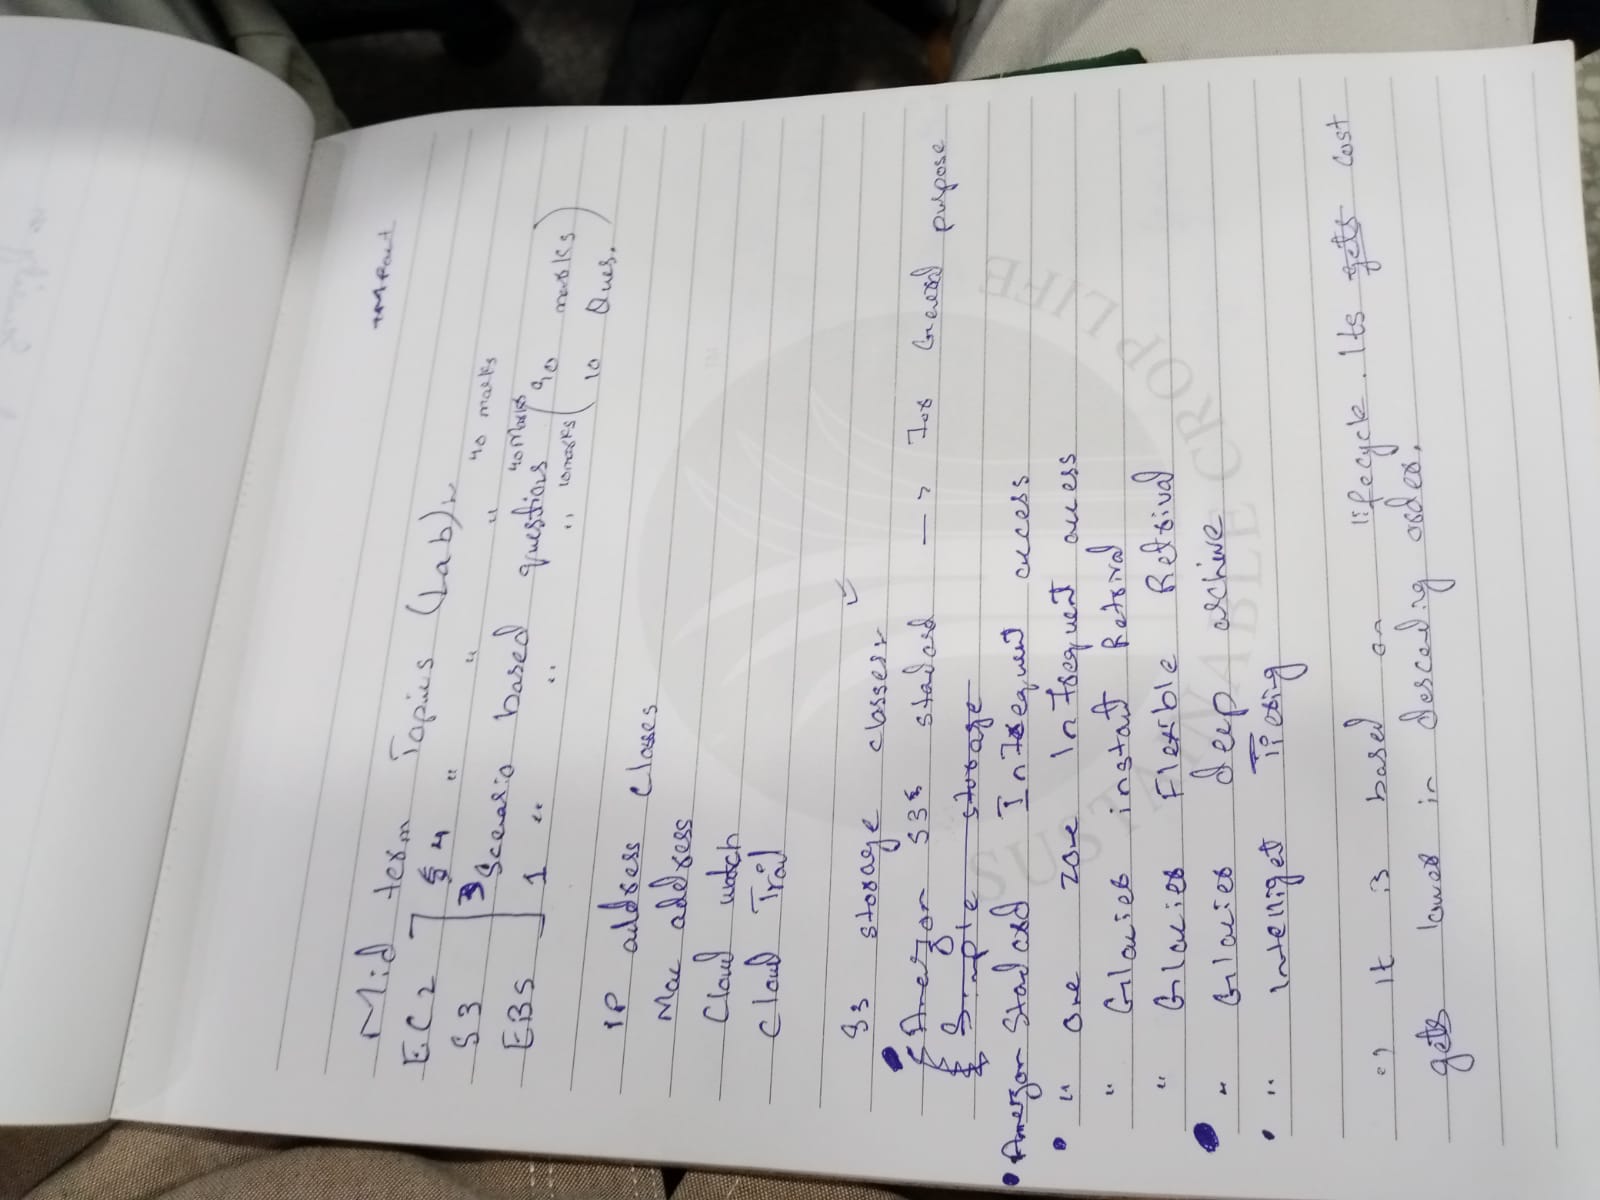 IMPant
Mid term Topics (Lab)
EC2 4 " " " 40 marks
S3 3 Scenario based questions 40 Marks (90 marks)
EBS 1 " " " 10 marks (10 Ques.)
IP address classes
Mac address
Cloud watch
Cloud Trail
S3 storage classes
Amazon S3 standard —> for General purpose
Simple storage
• Amezon Standard Infrequent access
• " One zone Infrequent access
" Glacier instant Retrival
" Glacier Flexible Retrival
• " Glacier deep archive
• " Intelliget Tiering
It is based on lifecycle. Its gets cost
gets lower in descending order.
SUSTAINABLE CROP LIFE
TM